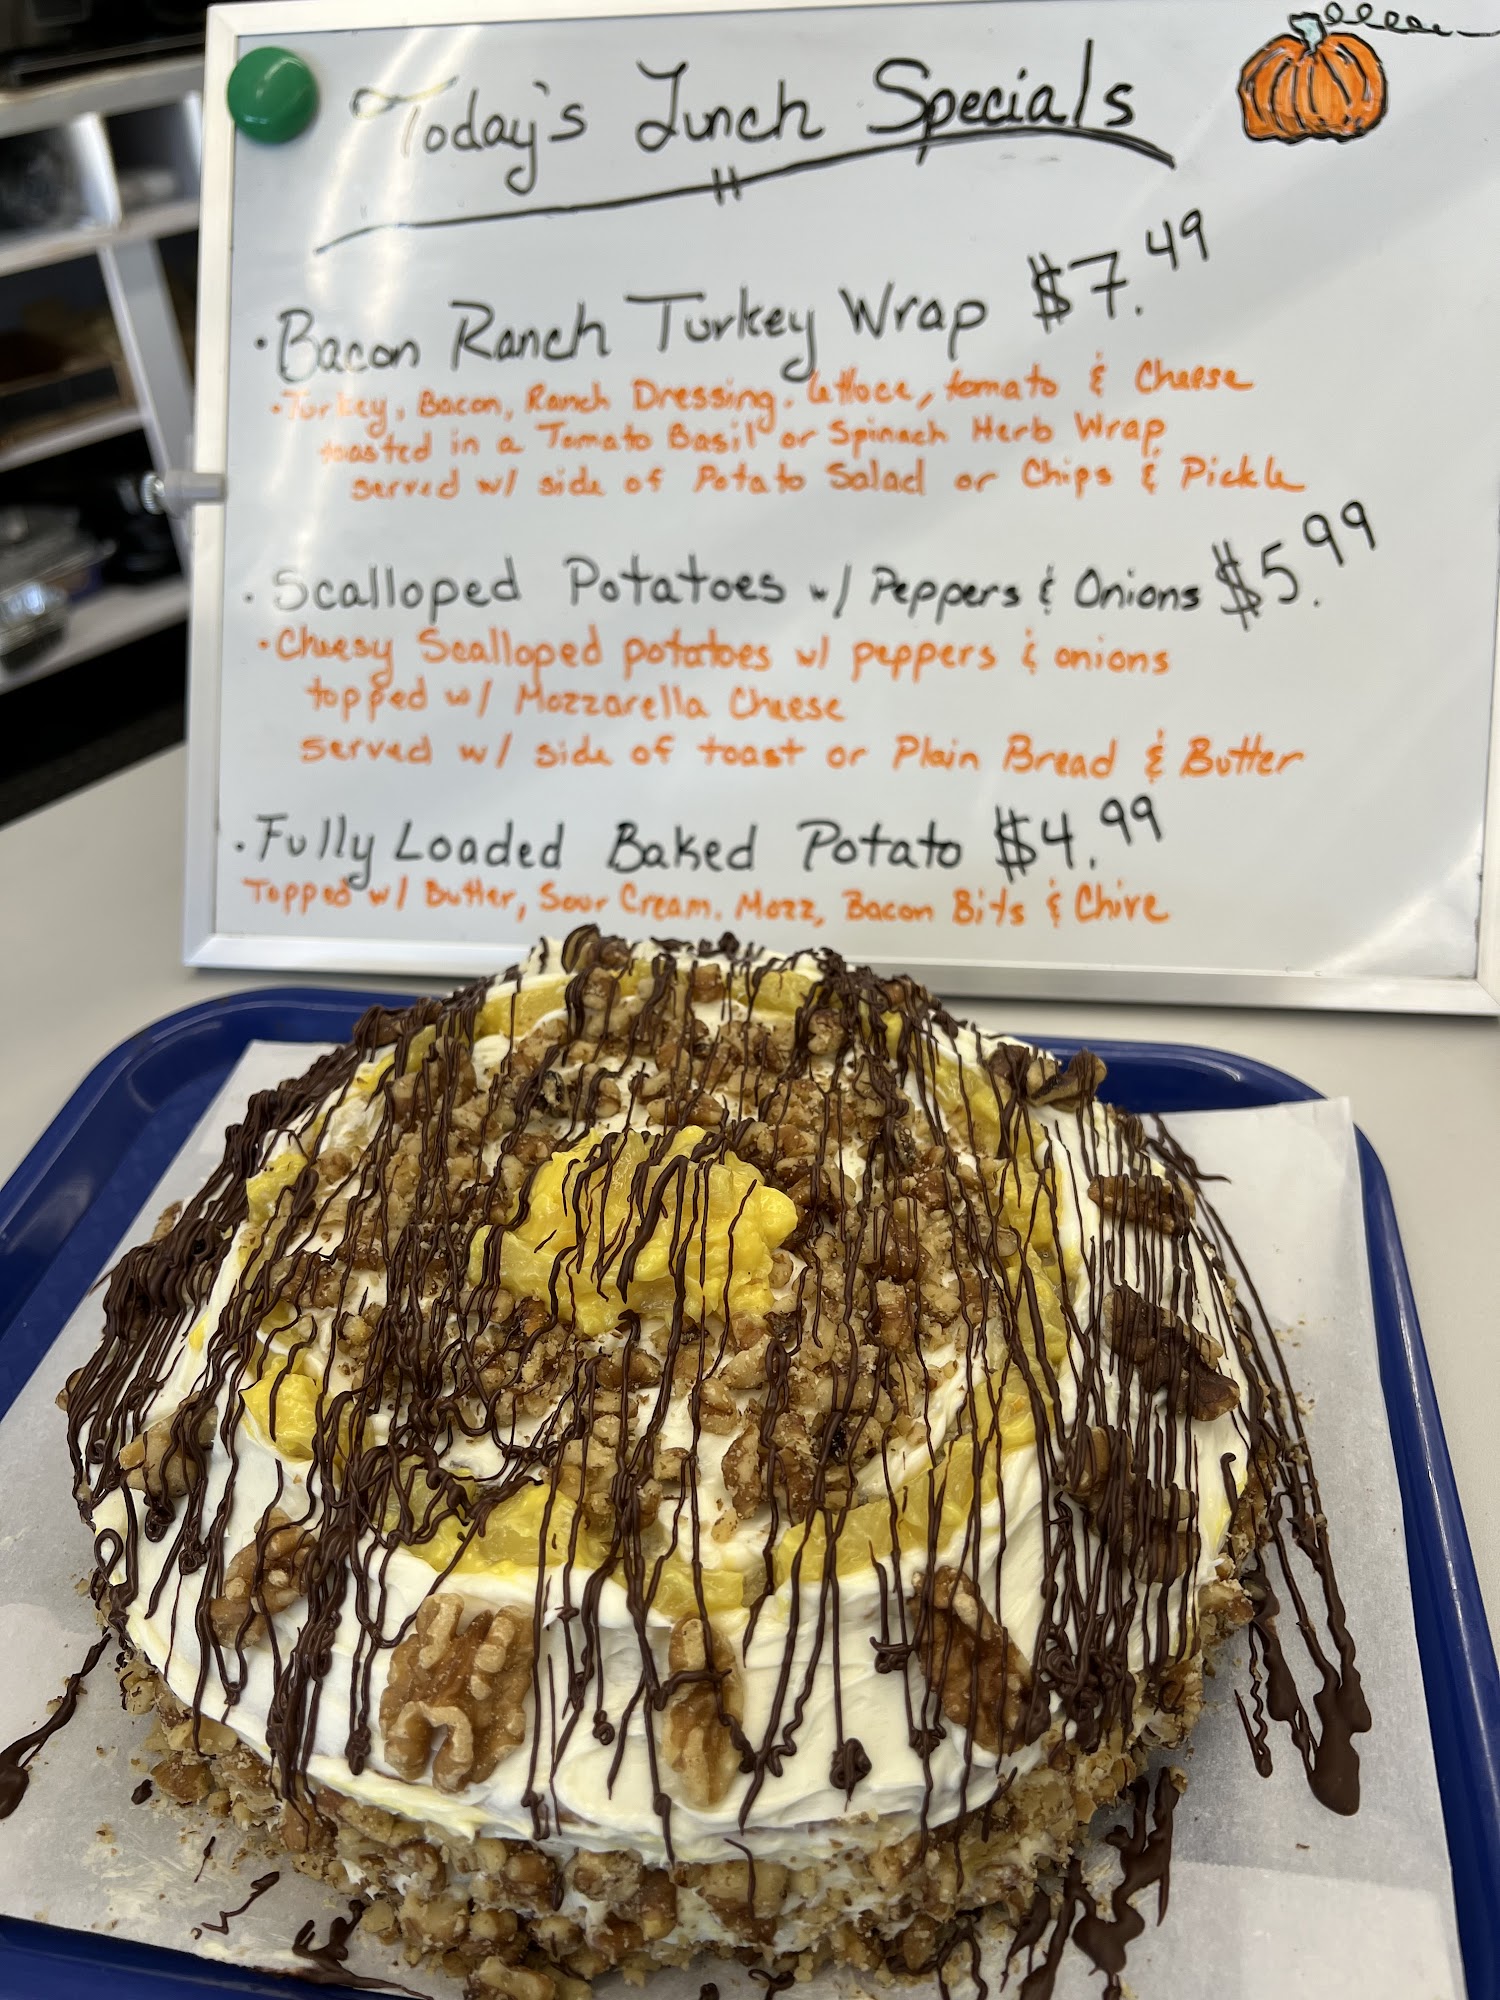 Today's Lunch Specials
• Bacon Ranch Turkey Wrap $7.49
• Turkey, Bacon, Ranch Dressing, lettuce, tomato & Cheese
toasted in a Tomato Basil or Spinach Herb Wrap
served w/ side of Potato Salad or Chips & Pickle
• Scalloped Potatoes w/ Peppers & Onions $5.99
• Cheesy Scalloped potatoes w/ peppers & onions
topped w/ Mozzarella Cheese
served w/ side of toast or Plain Bread & Butter
• Fully Loaded Baked Potato $4.99
Topped w/ Butter, Sour Cream, Mozz, Bacon Bits & Chive